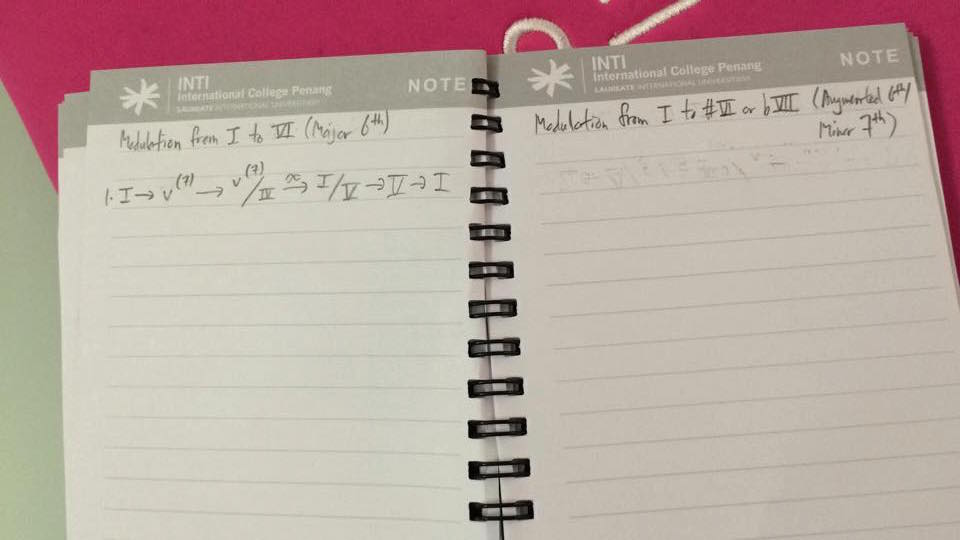 INTI
International College Penang
LAUREATE INTERNATIONAL UNIVERSITIES
NOTE
Modulation from I to VI (Major 6th)
1. I → v(7) → v(7)/IV → I/V → V → I
INTI
International College Penang
LAUREATE INTERNATIONAL UNIVERSITIES
NOTE
Modulation from I to #VI or bVII (Augmented 6th/
Minor 7th)